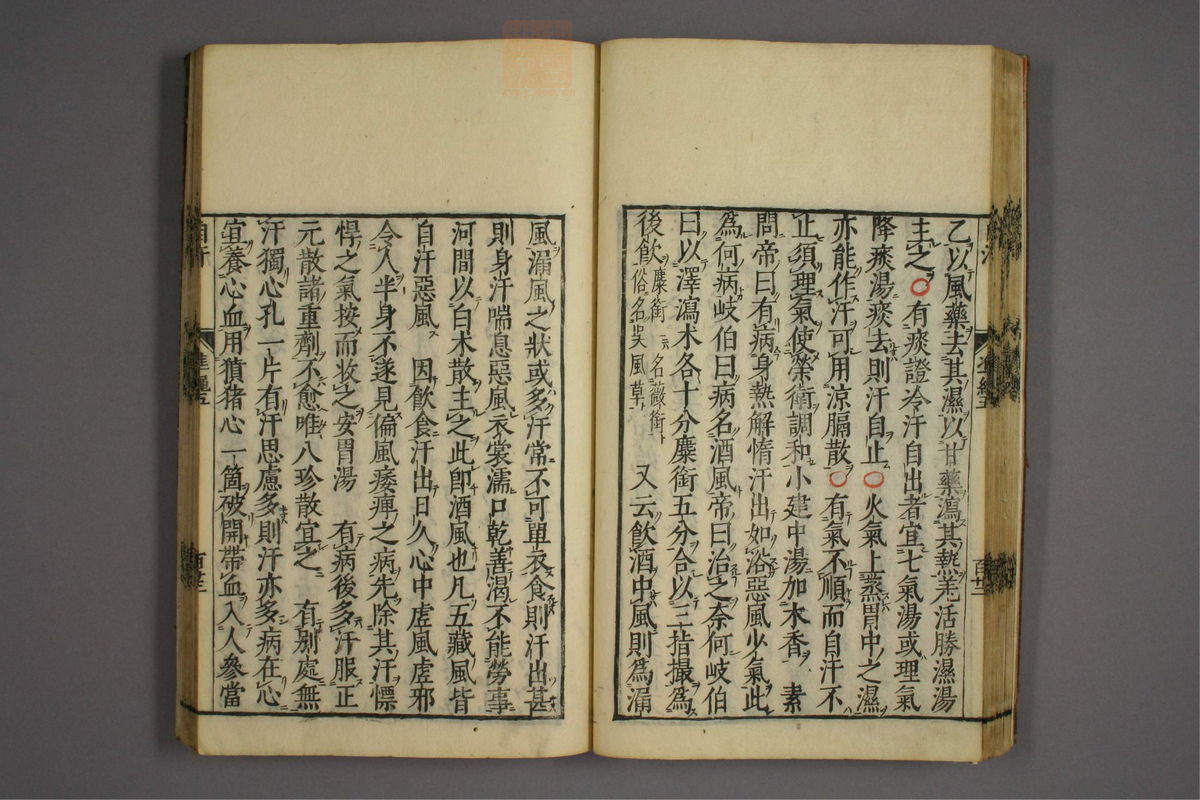 乙以風藥去其濕以甘藥瀉其熱羌活勝濕湯
主之○有痰證冷汗自出者宜七氣湯或理氣
降痰湯痰去則汗自止○火氣上蒸胃中之濕
亦能作汗可用涼膈散○有氣不順而自汗不
止須理氣使榮衛調和小建中湯加木香 素
問帝曰有病身熱解惰汗出如浴惡風少氣此
為何病岐伯曰病名酒風帝曰治之奈何岐伯
曰以澤瀉朮各十分麋銜五分合以三指撮為
後飲麋銜一名薇銜俗名吳風草 又云飲酒中風則為漏
風漏風之狀或多汗常不可單衣食則汗出甚
則身汗喘息惡風衣裳濡口乾善渴不能勞事
河間以白朮散主之此即酒風也凡五藏風皆
自汗惡風 因飲食汗出日久心中虛風虛邪
令人半身不遂見偏風痿痺之病先除其汗慓
悍之氣按而收之安胃湯 有病後多汗服正
元散諸重劑不愈唯八珍散宜之 有別處無
汗獨心孔一片有汗思慮多則汗亦多病在心
宜養心血用獖猪心一箇破開帶血入人參當
自汗